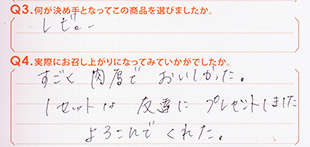 Q3.何が決め手となってこの商品を選びましたか。
レビュー
Q4.実際にお召し上がりになってみていかがでしたか。
すごく肉厚でおいしかった。
1セットは友達にプレゼントしました
よろこんでくれた。